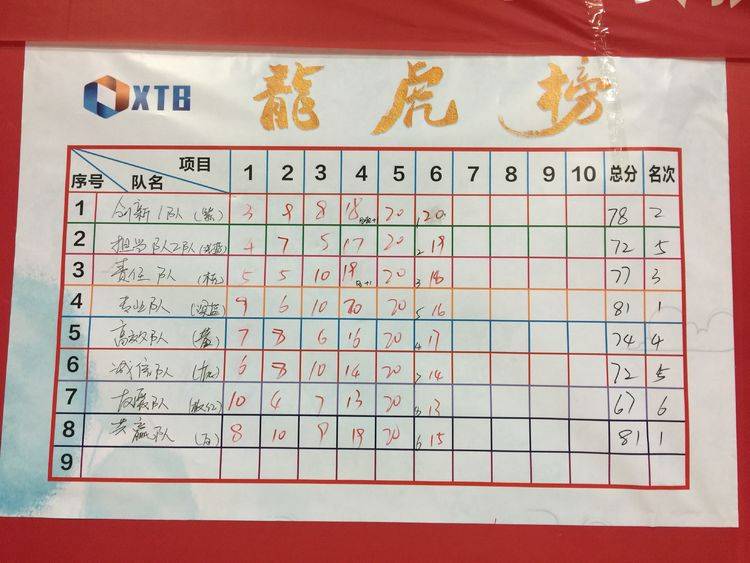 XTB 龍虎榜
项目 序号 队名 1 2 3 4 5 6 7 8 9 10 总分 名次
1 创新1队 (紫) 3 9 8 18 20 1 20 78 2
2 担当队2队 4 7 5 17 20 2 19 72 5
3 责任队 5 5 10 19 20 3 18 77 3
4 专业队 (深蓝) 9 6 10 20 20 5 16 81 1
5 高效队 7 8 6 16 20 4 17 74 4
6 诚信队 6 8 10 14 20 7 14 72 5
7 友爱队 10 4 7 13 20 8 13 67 6
8 共赢队 8 10 9 19 20 6 15 81 1
9